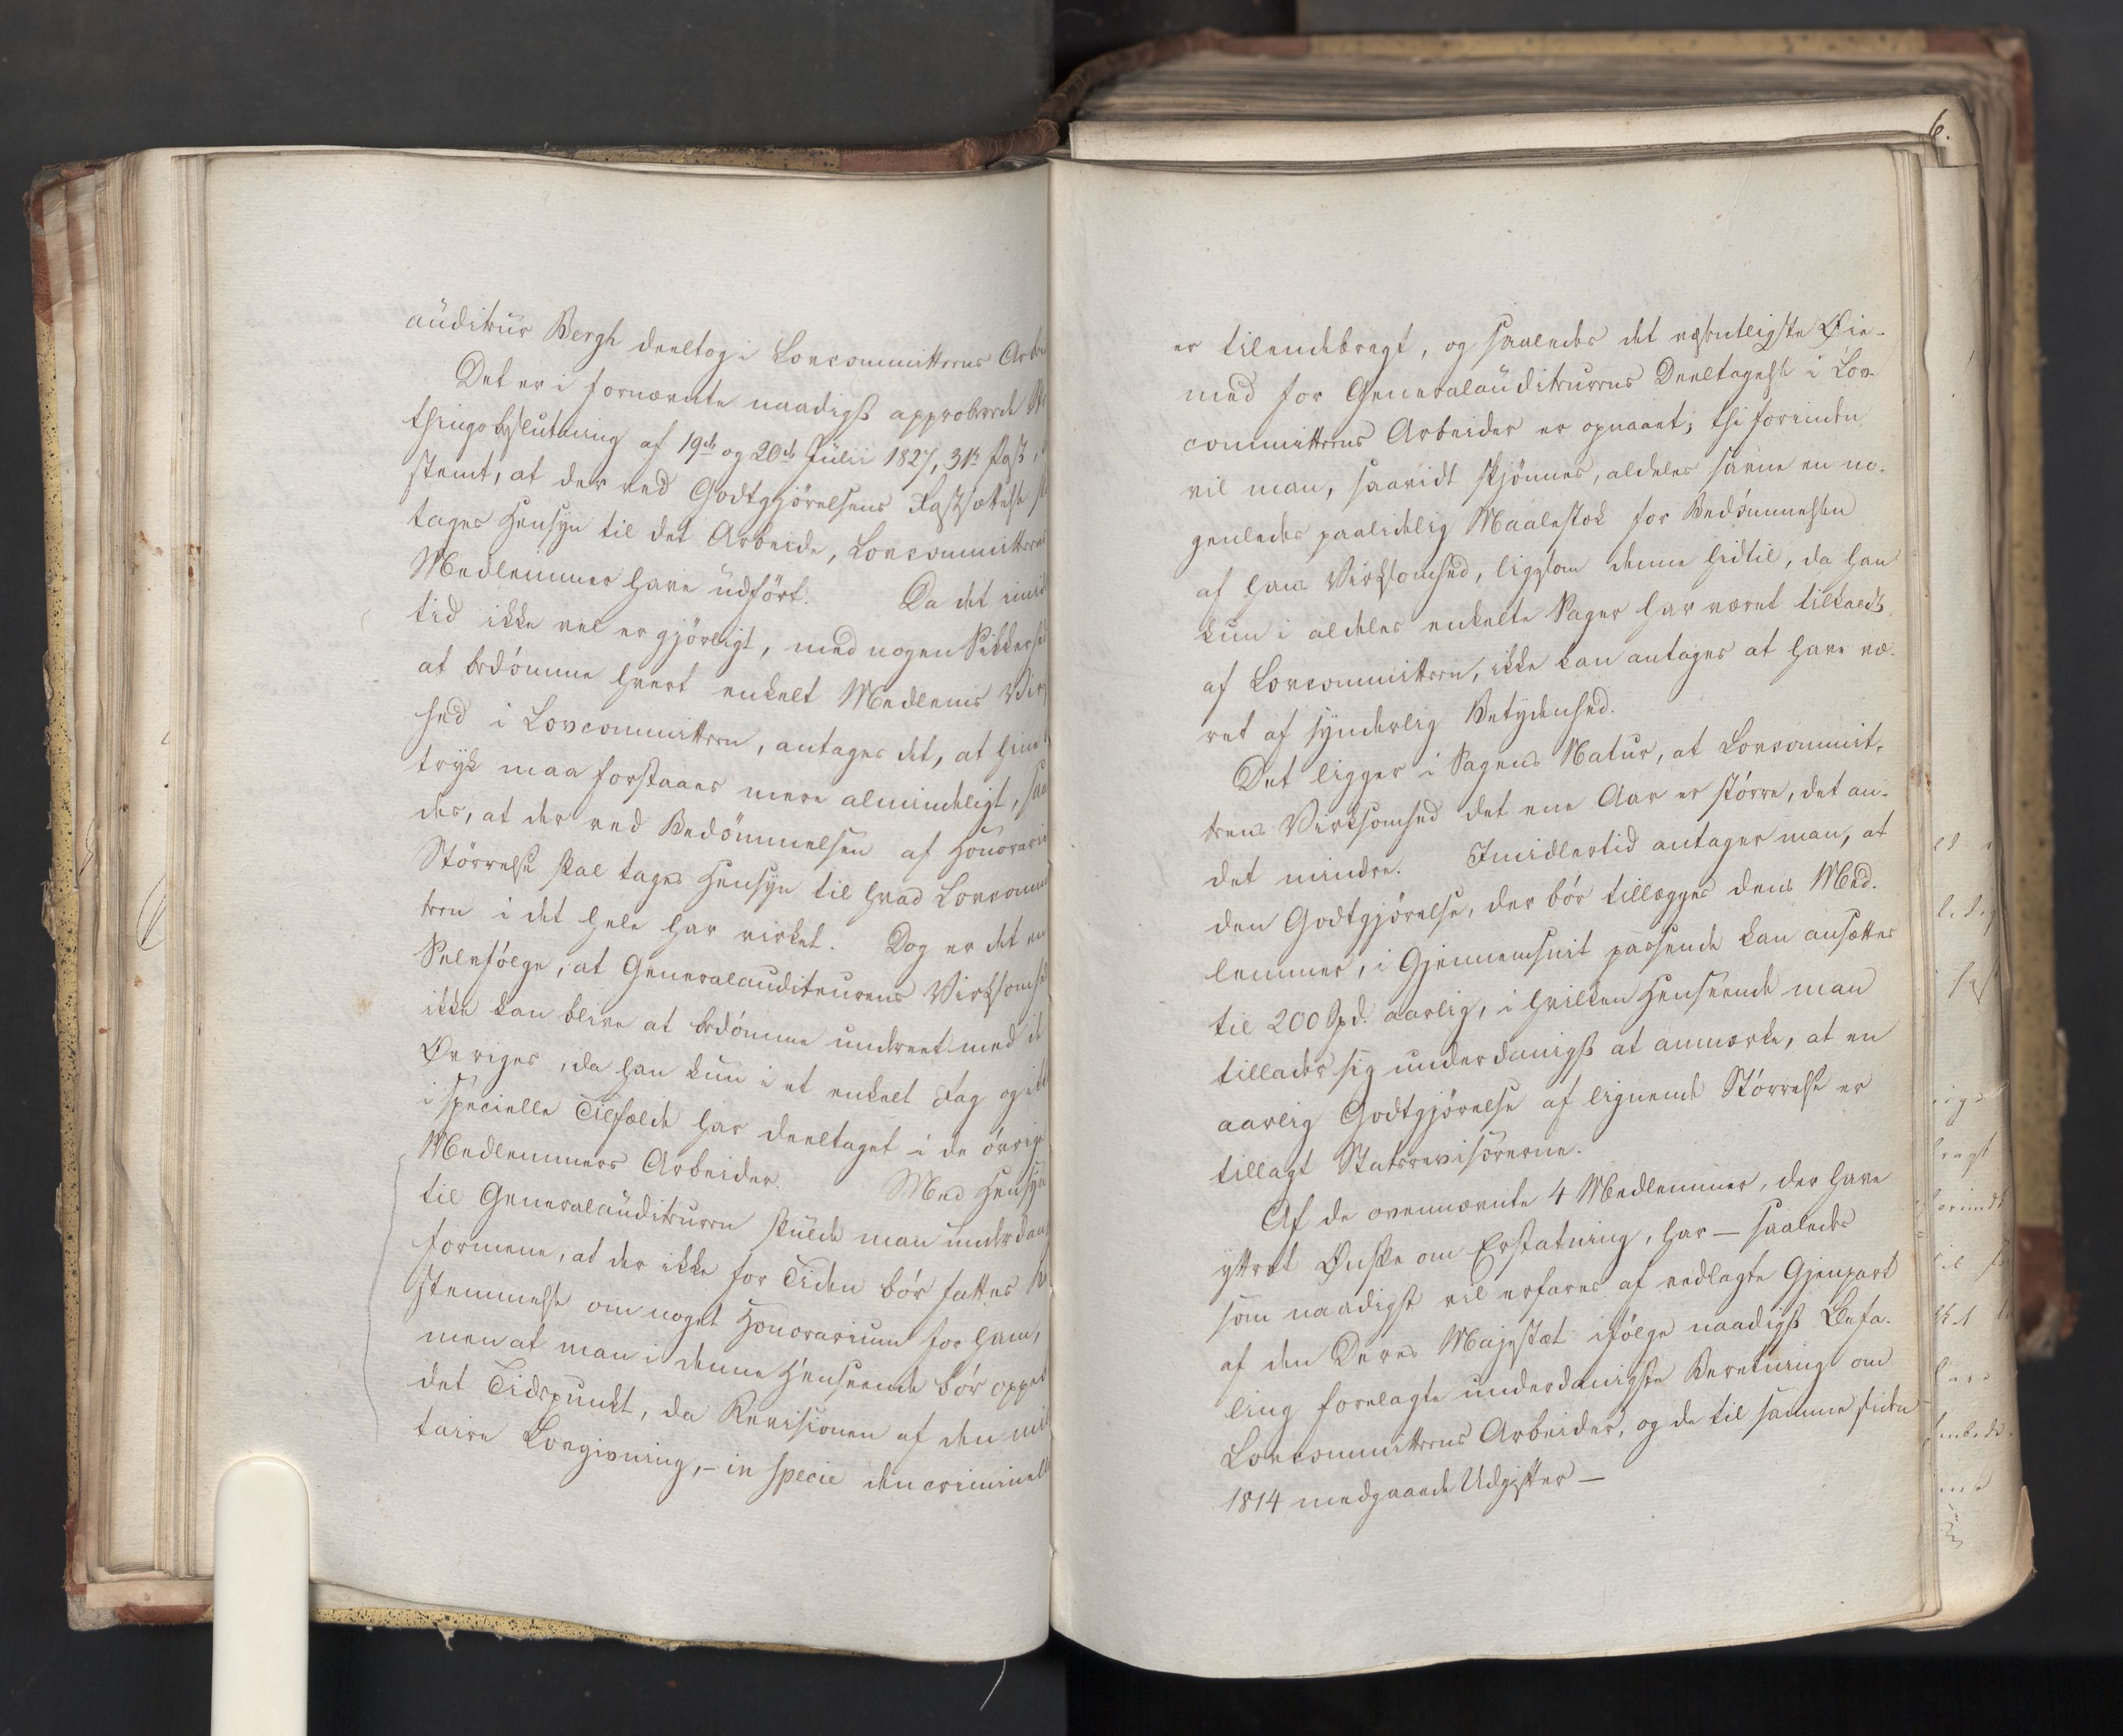 auditeur Bergh deeltog i Lovcommitteens Arbei
Det er i fornævnte naadigst approberede St
thingsbeslutning af 19de og 20de Julii 1827, 3die Post,
stemt, at der ved Godtgjörelsens Fastsættelse
tages Hensyn til det Arbeide, Lovcommitteens
Medlemmer have udfört. Da det imid
tid ikke vel er gjörligt, med nogen Sikkerhed
at bedömme hvert enkelt Medlems Virk
hed i Lovcommitteen, antages det, at hint
tryk maa forstaaes mere almindeligt, saa
des, at der ved Bedömmelsen af Honorarie
Störrelse skal tages Hensyn til hvad Lovcomm
teen i det Hele har virket. Dog er det en
Selvfölge, at Generalauditeurens Virksomhed
ikke kan blive at bedömme undereet med de
Övriges, da han kun i et enkelt Fag og i
specielle Tilfælde har deeltaget i de övrige
Medlemmers Arbeider. Med Hensyn
til Generalauditeuren skulde man underdan
formene, at der ikke for Tiden bör fattes Be
stemmelse om noget Honorarium for ham,
men at man i denne Henseende bör oppebi
det Tidspunkt, da Revisionen af den mili
taire Lovgivning, – in specie den criminelle
6.
er tilendebragt, og saaledes det væsentligste Øie-
med for Generalauditeurens Deeltagelse i Lov-
committeens Arbeider er opnaaet; thi forinden
vil man, saavidt skjönnes, aldeles savne en no-
genledes paalidelig Maalestok for Bedömmelsen
af hans Virksomhed, ligesom denne hidtil, da han
kun i aldeles enkelte Sager har været tilkaldt
af Lovcommitteen, ikke kan antages at have væ-
ret af synderlig Betydenhed.
Det ligger i Sagens Natur, at Lovcommit-
teens Virksomhed det ene Aar er större, det an-
det mindre. Imidlertid antager man, at
den Godtgjörelse, der bör tillægges dens Med-
lemmer, i Gjennemsnit passende kan ansættes
til 200 Spd. aarlig, i hvilken Henseende man
tillader sig underdanigst at anmærke, at en
aarlig Godtgjörelse af lignende Störrelse er
tillagt Statsrevisorerne.
Af de ovennævnte 4 Medlemmer, der have
yttret Ønske om Erstatning, har – saaledes
som naadigst vil erfares af vedlagte Gjenpart
af den Deres Majestæt ifölge naadigst Befa-
ling forelagte underdanigste Beretning om
Lovcommitteens Arbeider, og de til samme siden
1814 medgaaede Udgifter –